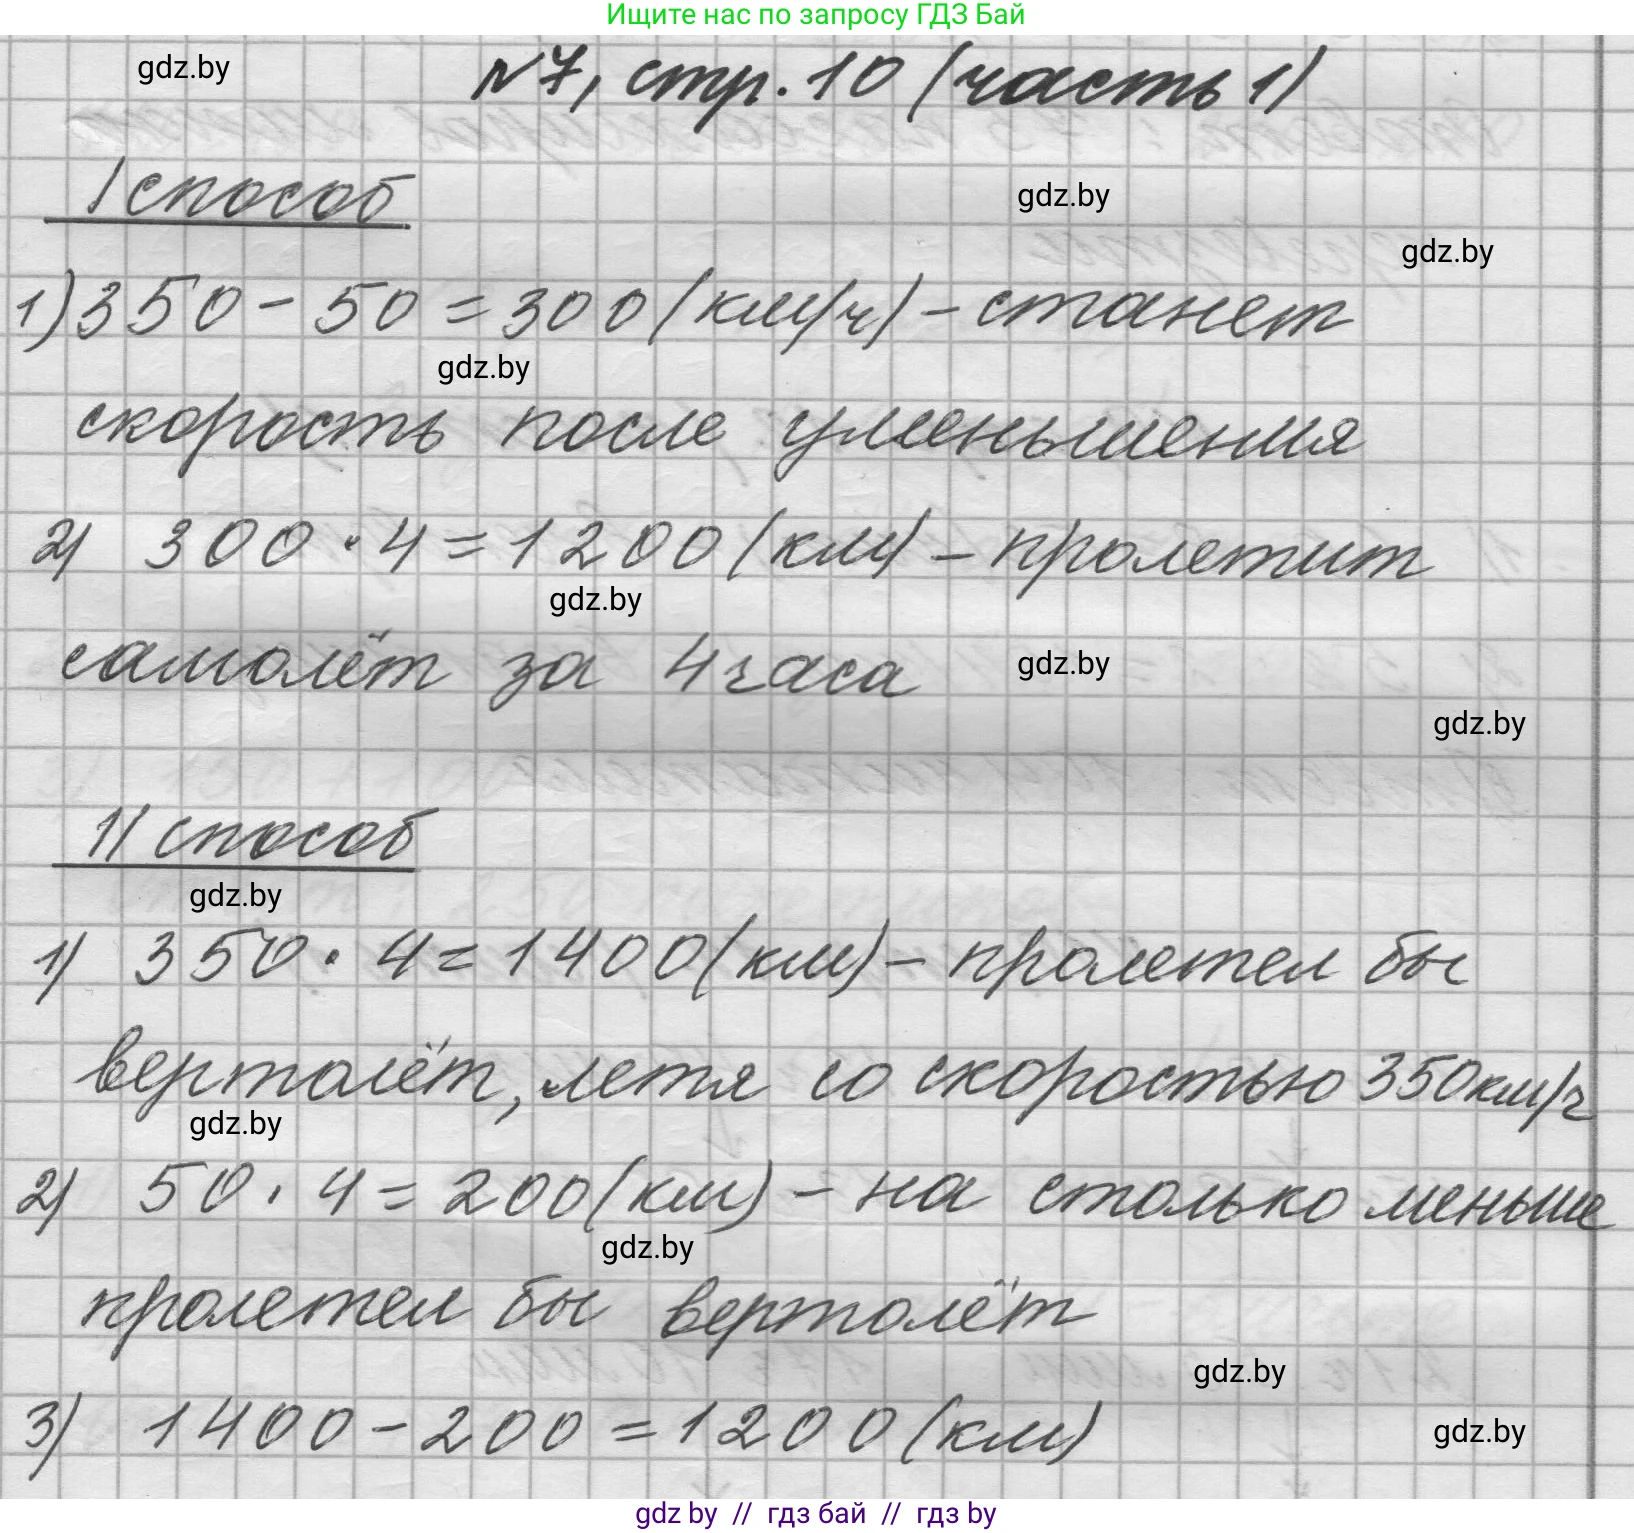 Ищите нас по запросу ГДЗ Бай
gdz.by
№7, стр. 10 (часть 1)
I способ
gdz.by
gdz.by
1) 350 - 50 = 300 (км/ч) - станет
gdz.by
скорость после уменьшения
2) 300 · 4 = 1200 (км) - пролетит
gdz.by
самолёт за 4 часа
gdz.by
gdz.by
II способ
gdz.by
1) 350 · 4 = 1400 (км) - пролетел бы
вертолёт, летя со скоростью 350 км/ч
gdz.by
2) 50 · 4 = 200 (км) - на столько меньше
gdz.by
пролетел бы вертолёт
gdz.by
3) 1400 - 200 = 1200 (км)
gdz.by
gdz by // гдз бай // гдз by